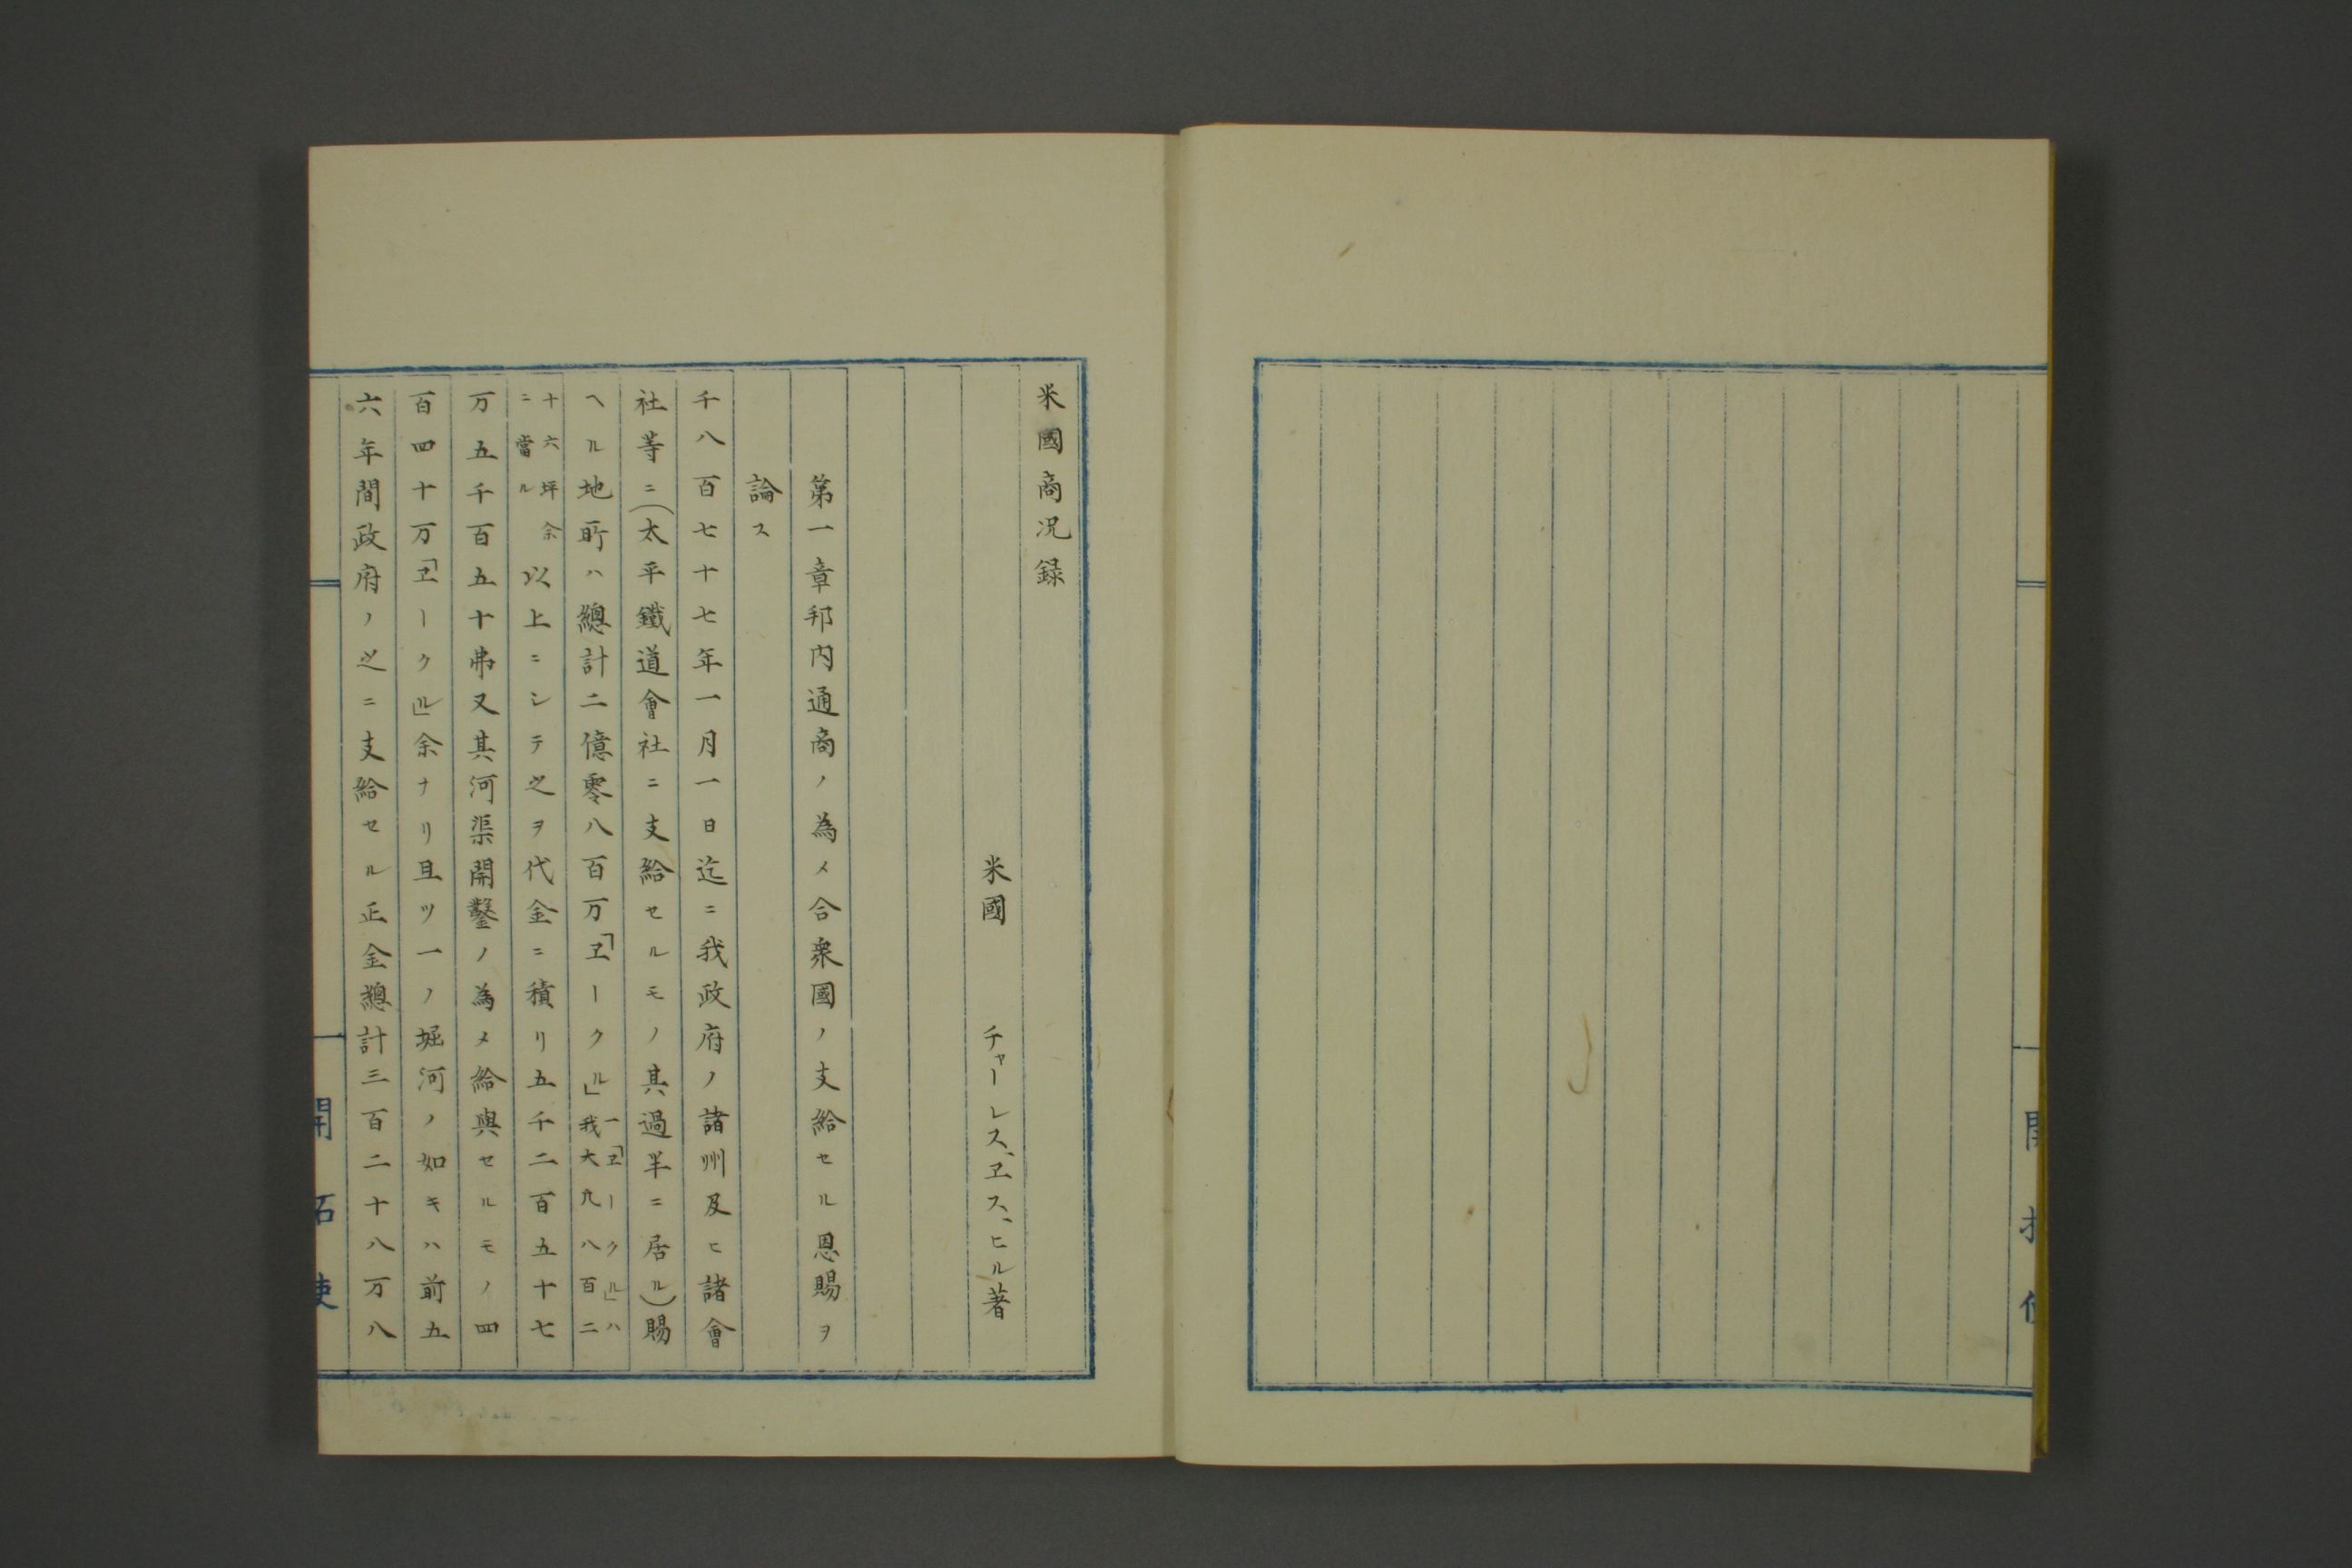 米國商况録
米國　チャーレス、ヱス、ヒル著
第一章邦内通商ノ為メ合衆國ノ支給セル恩賜ヲ
論ス
千八百七十七年一月一日迄ニ我政府ノ諸州及ヒ諸會
社等ニ(太平鐵道會社ニ支給セルモノ其過半ニ居ル)賜
ヘル地所ハ總計二億零八百万「ヱークル」一「ヱークル」ハ我大凡八百二
十六坪余ニ當ル以上ニシテ之ヲ代金ニ積リ五千二百五十七
万五千百五十弗又其河渠開鑿ノ為メ給與セルモノ四
百四十万「ヱークル」余ナリ且ツ一ノ堀河ノ如キハ前五
六年間政府ノ之ニ支給セル正金總計三百二十八万八
開拓使
開拓使